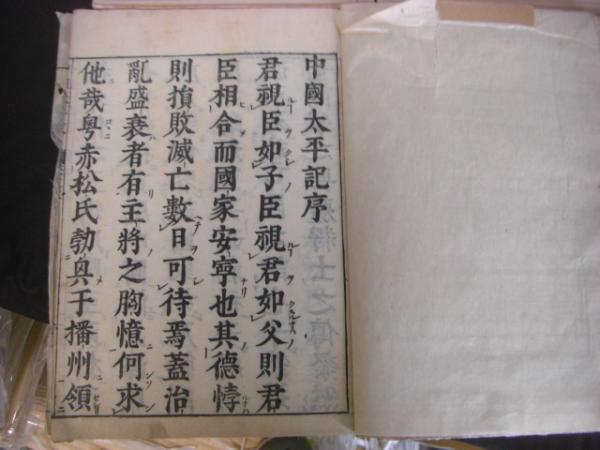 中國太平記序
君視臣如子臣視君如父則君
臣相合而國家安寧也其德悖
則損敗滅亡數日可待焉蓋治
亂盛衰者有主將之胸憶何求
他哉粤赤松氏勃興于播州領